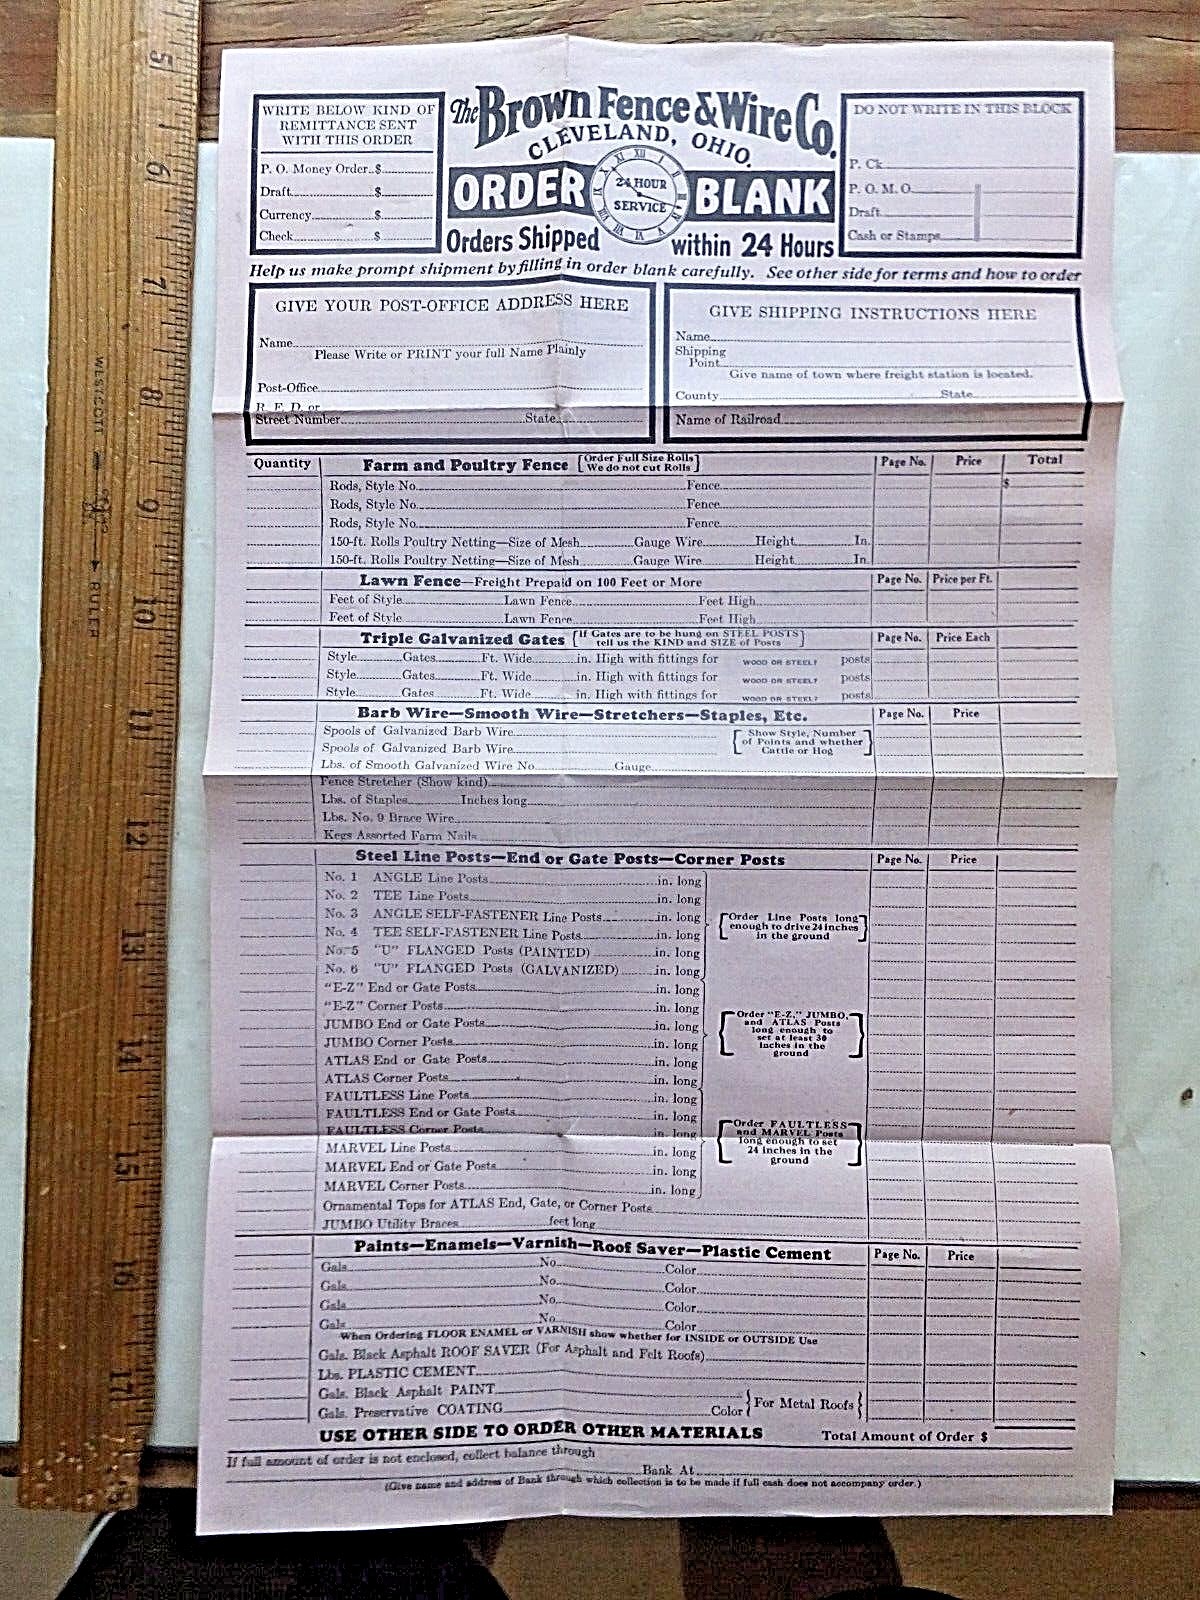 WRITE BELOW KIND OF
REMITTANCE SENT
WITH THIS ORDER
P. O. Money Order $
Draft $
Currency $
Check $
The Brown Fence & Wire Co.
CLEVELAND, OHIO.
ORDER BLANK
XII I II III IV V VI VII VIII IX X XI
24 HOUR
SERVICE
Orders Shipped within 24 Hours
DO NOT WRITE IN THIS BLOCK
P. Ck
P. O. M. O.
Draft
Cash or Stamps
Help us make prompt shipment by filling in order blank carefully. See other side for terms and how to order
GIVE YOUR POST-OFFICE ADDRESS HERE
Name
Please Write or PRINT your full Name Plainly
Post-Office
R. F. D. or
Street Number State
GIVE SHIPPING INSTRUCTIONS HERE
Name
Shipping
Point
Give name of town where freight station is located.
County State
Name of Railroad
Quantity Farm and Poultry Fence [Order Full Size Rolls Page No. Price Total
We do not cut Rolls]
Rods, Style No. Fence $
Rods, Style No. Fence
Rods, Style No. Fence
150-ft. Rolls Poultry Netting—Size of Mesh Gauge Wire Height In.
150-ft. Rolls Poultry Netting—Size of Mesh Gauge Wire Height In.
Lawn Fence—Freight Prepaid on 100 Feet or More Page No. Price per Ft.
Feet of Style Lawn Fence Feet High
Feet of Style Lawn Fence Feet High
Triple Galvanized Gates [If Gates are to be hung on STEEL POSTS Page No. Price Each
tell us the KIND and SIZE of Posts]
Style Gates Ft. Wide in. High with fittings for WOOD OR STEEL? posts
Style Gates Ft. Wide in. High with fittings for WOOD OR STEEL? posts
Style Gates Ft. Wide in. High with fittings for WOOD OR STEEL? posts
Barb Wire—Smooth Wire—Stretchers—Staples, Etc. Page No. Price
Spools of Galvanized Barb Wire
Spools of Galvanized Barb Wire
[Show Style, Number
of Points and whether
Cattle or Hog]
Lbs. of Smooth Galvanized Wire No. Gauge
Fence Stretcher (Show kind)
Lbs. of Staples Inches long
Lbs. No. 9 Brace Wire
Kegs Assorted Farm Nails
Steel Line Posts—End or Gate Posts—Corner Posts Page No. Price
No. 1 ANGLE Line Posts in. long
No. 2 TEE Line Posts in. long
No. 3 ANGLE SELF-FASTENER Line Posts in. long
No. 4 TEE SELF-FASTENER Line Posts in. long
No. 5 "U" FLANGED Posts (PAINTED) in. long
No. 6 "U" FLANGED Posts (GALVANIZED) in. long
[Order Line Posts long
enough to drive 24 inches
in the ground]
"E-Z" End or Gate Posts in. long
"E-Z" Corner Posts in. long
JUMBO End or Gate Posts in. long
JUMBO Corner Posts in. long
ATLAS End or Gate Posts in. long
ATLAS Corner Posts in. long
[Order "E-Z," JUMBO,
and ATLAS Posts
long enough to
set at least 30
inches in the
ground]
FAULTLESS Line Posts in. long
FAULTLESS End or Gate Posts in. long
FAULTLESS Corner Posts in. long
MARVEL Line Posts in. long
MARVEL End or Gate Posts in. long
MARVEL Corner Posts in. long
[Order FAULTLESS
and MARVEL Posts
long enough to set
24 inches in the
ground]
Ornamental Tops for ATLAS End, Gate, or Corner Posts
JUMBO Utility Braces feet long
Paints—Enamels—Varnish—Roof Saver—Plastic Cement Page No. Price
Gals. No. Color
Gals. No. Color
Gals. No. Color
Gals. No. Color
When Ordering FLOOR ENAMEL or VARNISH show whether for INSIDE or OUTSIDE Use
Gals. Black Asphalt ROOF SAVER (For Asphalt and Felt Roofs)
Lbs. PLASTIC CEMENT
Gals. Black Asphalt PAINT
Gals. Preservative COATING Color {For Metal Roofs}
USE OTHER SIDE TO ORDER OTHER MATERIALS Total Amount of Order $
If full amount of order is not enclosed, collect balance through
Bank At
(Give name and address of Bank through which collection is to be made if full cash does not accompany order.)
WESTCOTT RULER
5
6
7
8
9
10
11
12
13
14
15
16
17